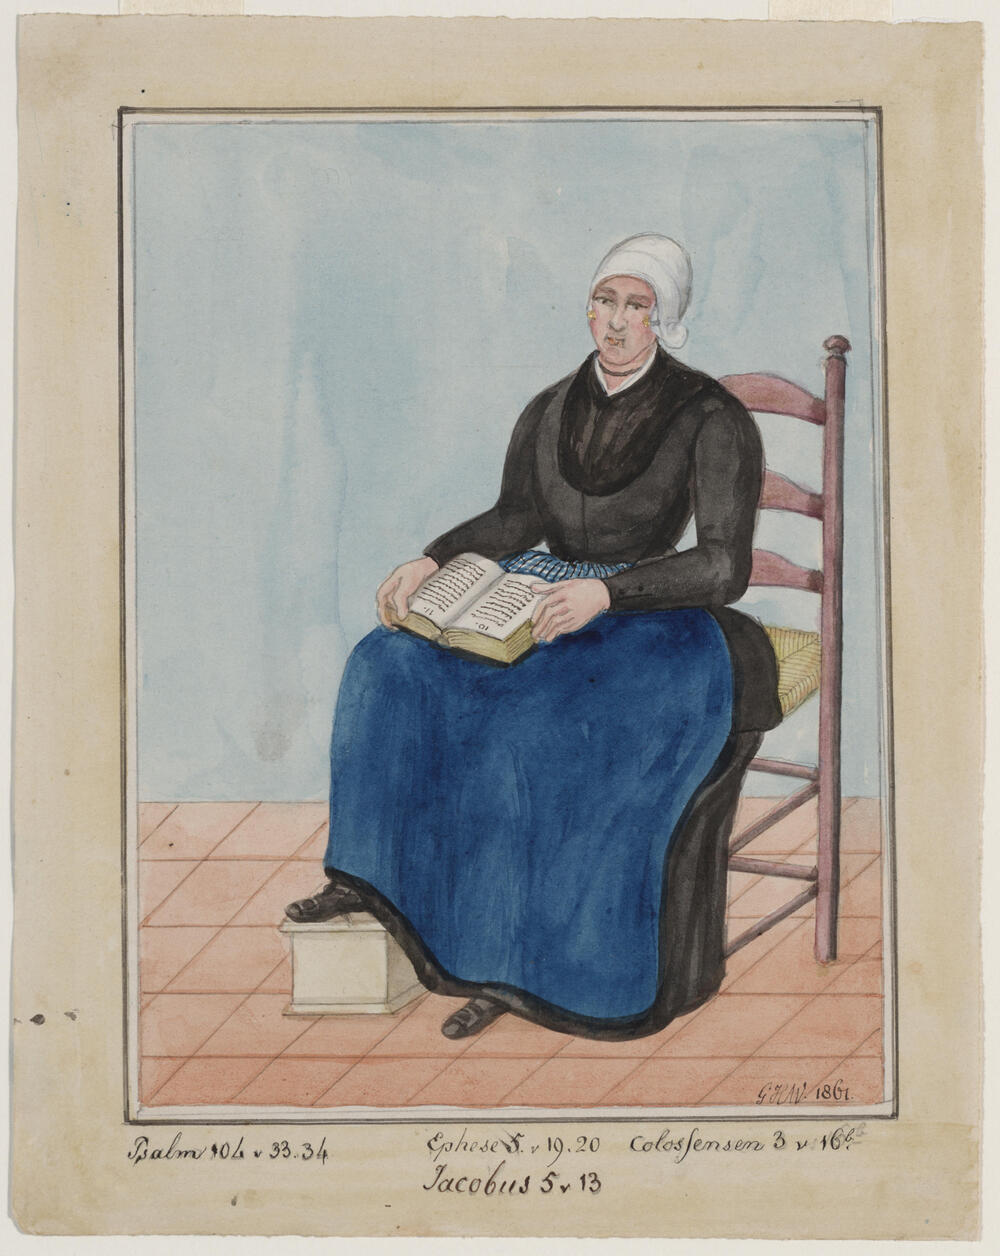 11.
10.
GHW. 1861.
Psalm 104 v 33.34
Ephese 5. v 19.20
Colossensen 3 v 16b.
Jacobus 5 v 13